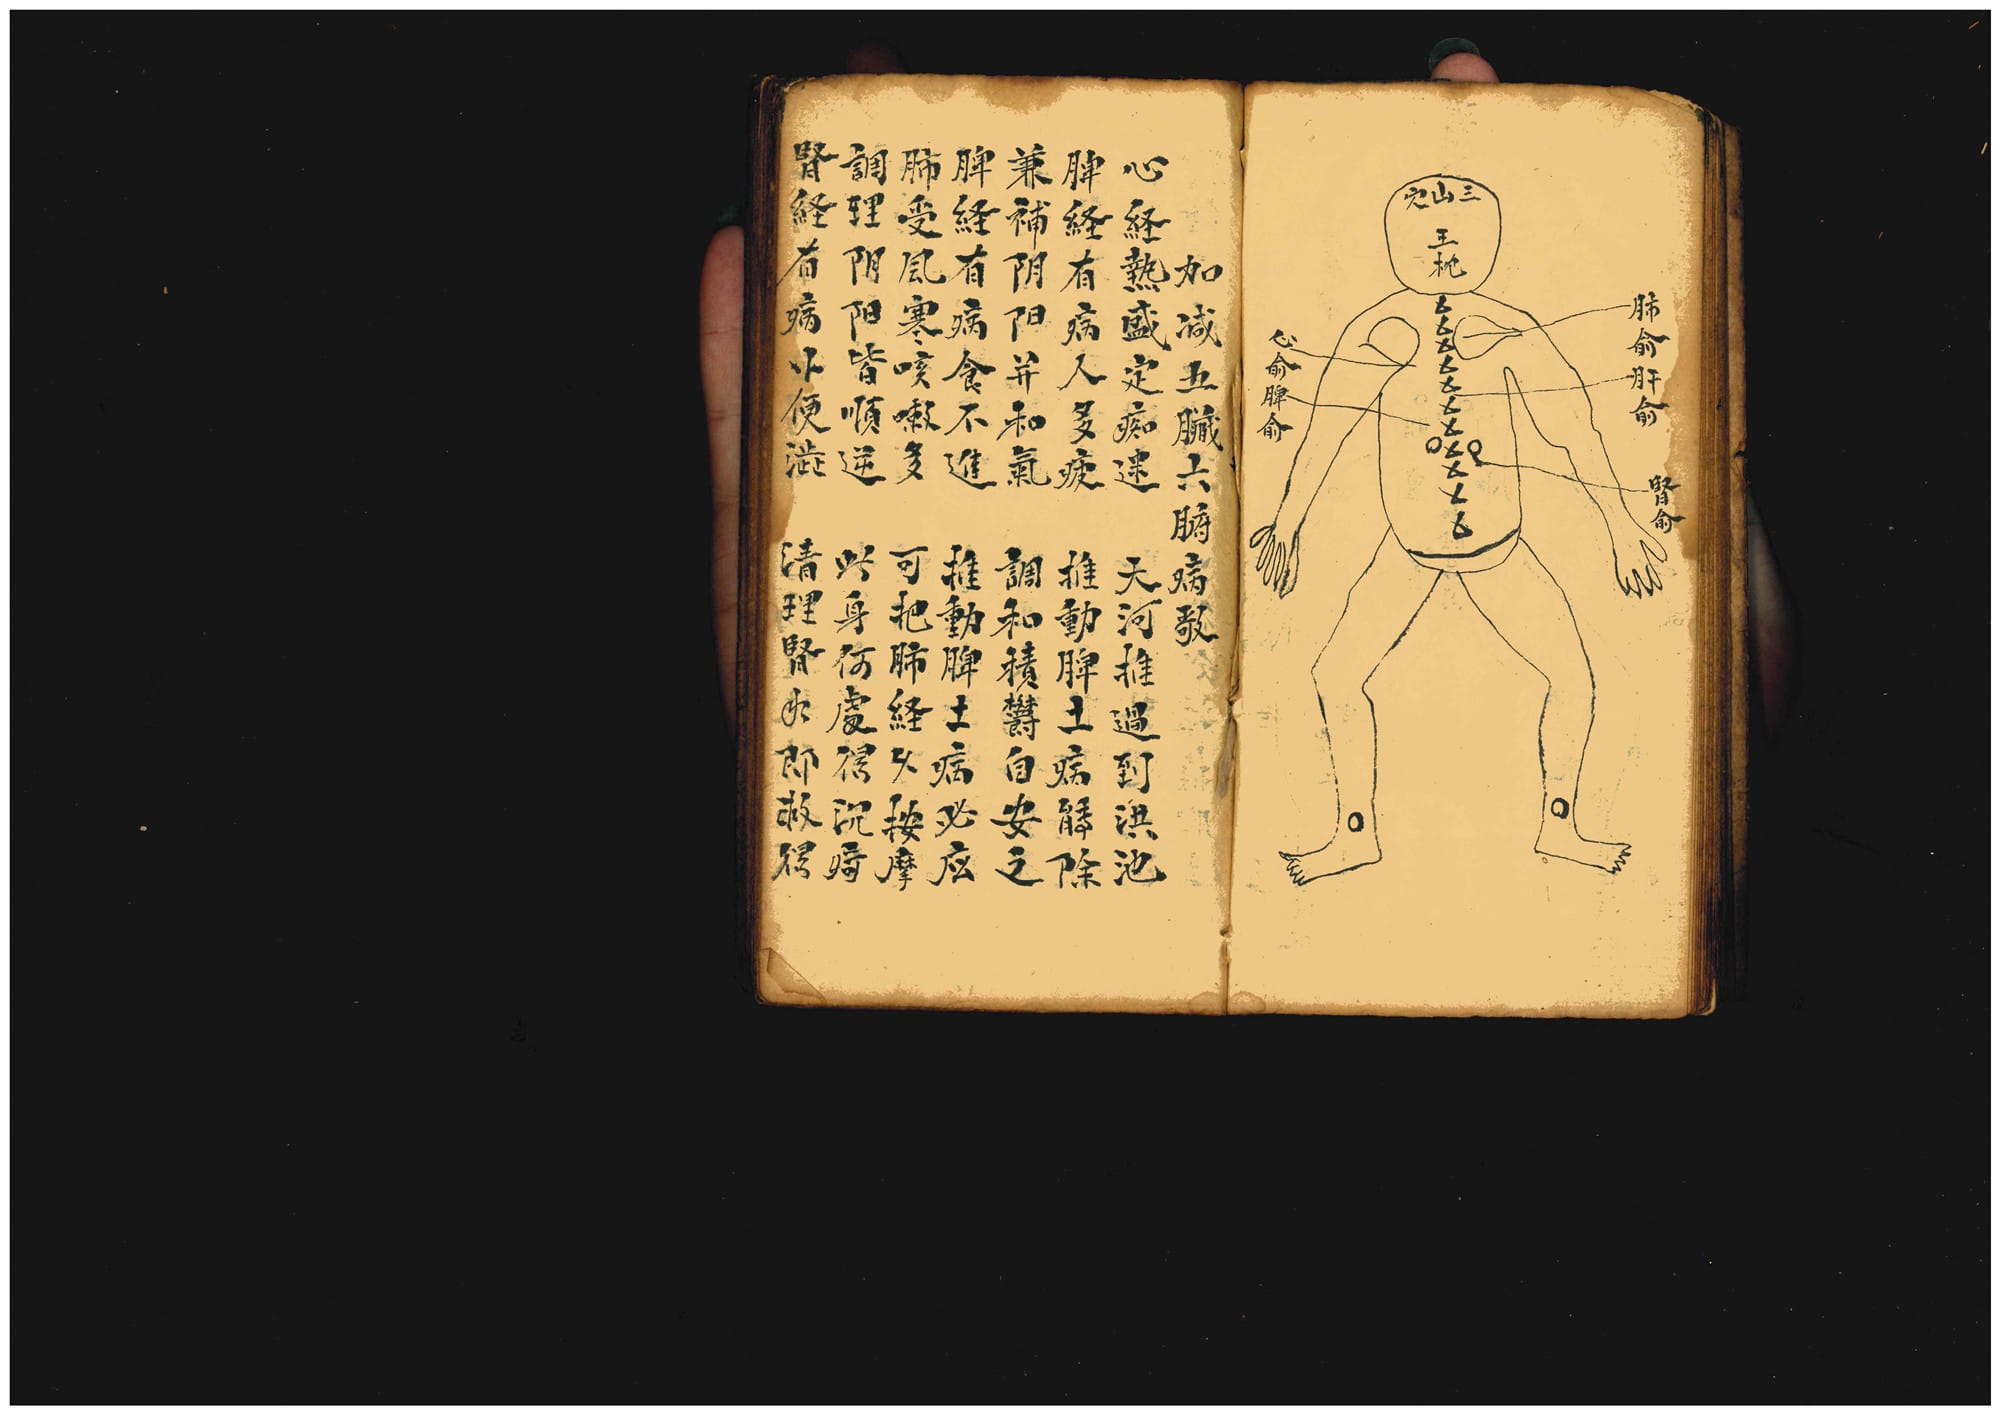 三山穴
玉枕
肺俞
肝俞
腎俞
心俞
脾俞
加减五臟六腑病歌
心経熱盛定痴迷 天河推過到洪池
脾経有病人多疲 推動脾土病能除
兼補阴阳并和氣 調和積欝自安之
脾経有病食不進 推動脾土病必応
肺受風寒咳嗽多 可把肺経久按摩
調理阴阳皆順逆 此身何處得沉疴
腎経有病小便澁 清理腎水即救得